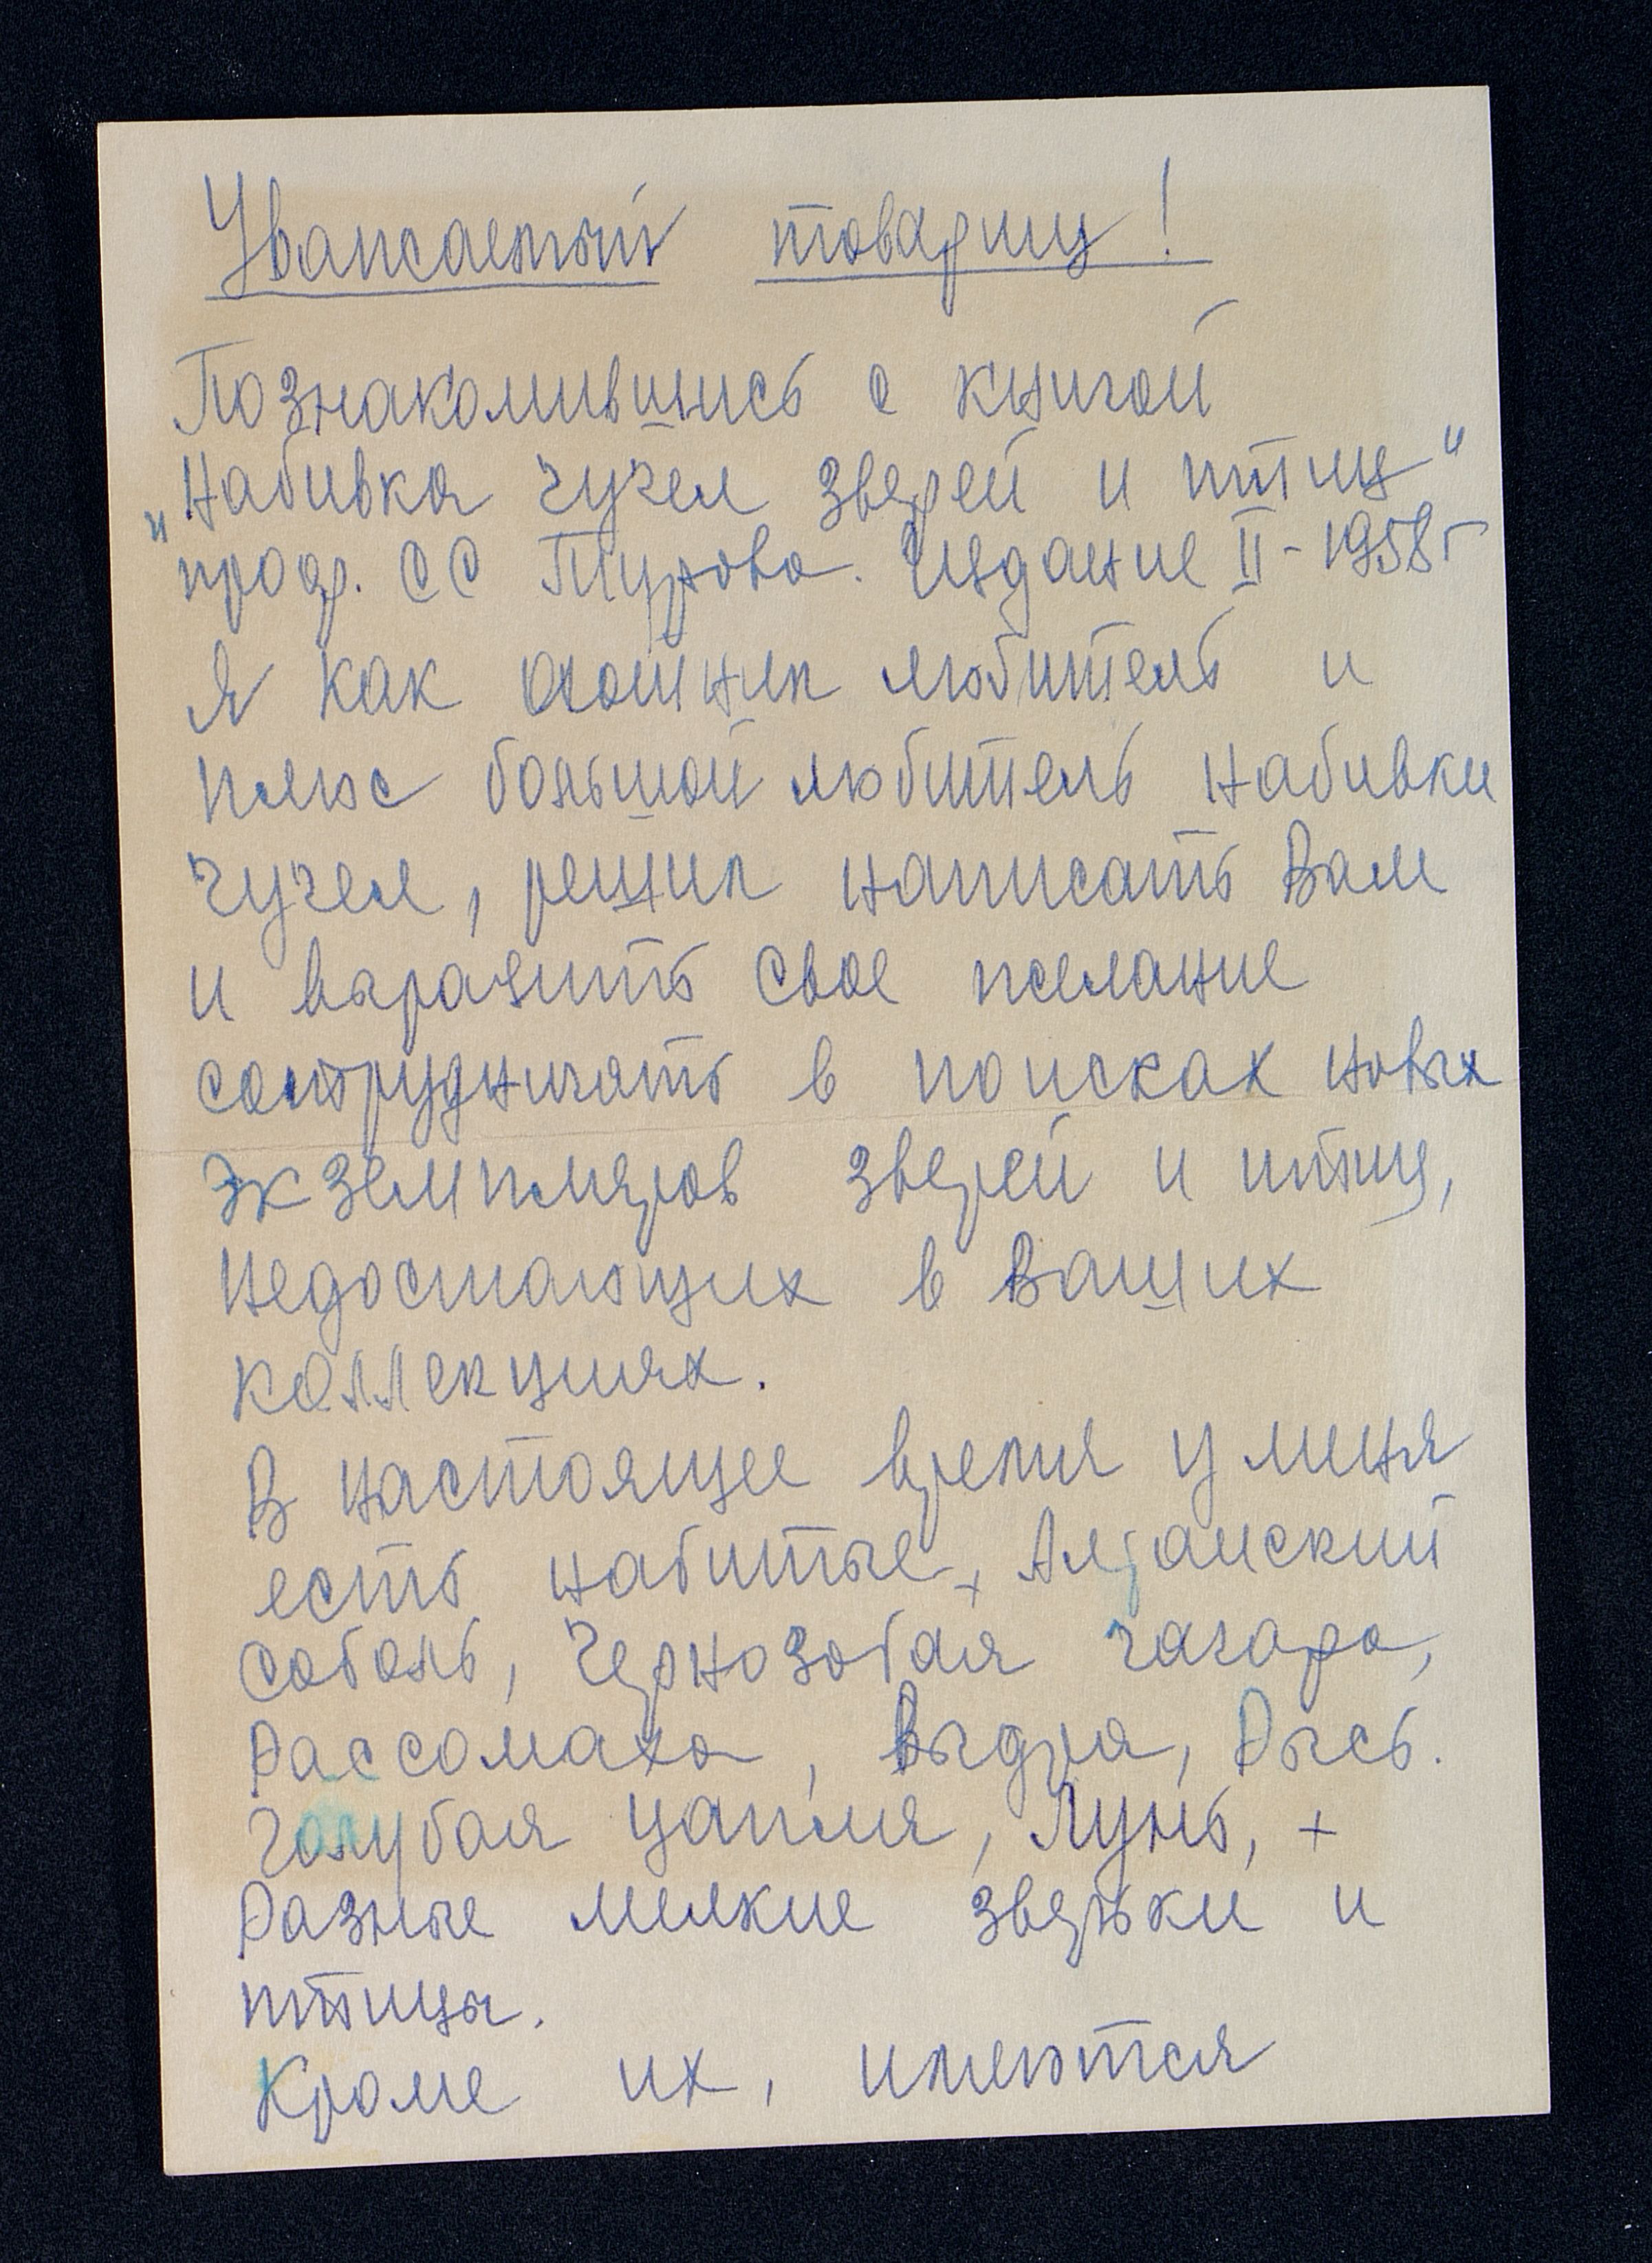 Уважаемый товарищ!
Познакомившись с книгой
"Набивка чучел зверей и птиц"
проф. СС Турова. Издание II - 1958г
Я как охотник любитель и
плюс большой любитель набивки
чучел, решил написать Вам
и выразить свое желание
сотрудничать в поисках новых
экземпляров зверей и птиц,
недостающих в Ваших
коллекциях.
В настоящее время у меня
есть набитые, Алданский
соболь, Чернозобая гагара,
Россомаха, Выдра, Рысь.
Голубая цапля, Лунь, +
Разные мелкие зверьки и
птицы.
Кроме их, имеются